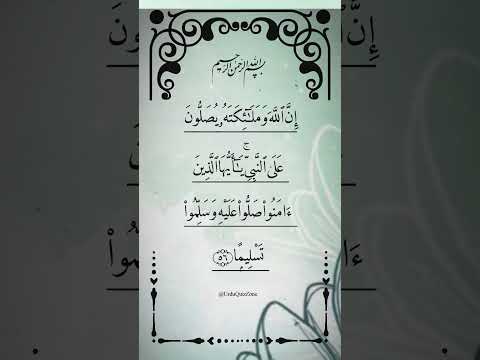 بسم الله الرحمن الرحيم
إِنَّ ٱللَّهَ وَمَلَـٰٓئِكَتَهُۥ يُصَلُّونَ
عَلَى ٱلنَّبِىِّ ۚ يَـٰٓأَيُّهَا ٱلَّذِينَ
ءَامَنُوا۟ صَلُّوا۟ عَلَيْهِ وَسَلِّمُوا۟
تَسْلِيمًا ۝٥٦
@UrduQuizZone